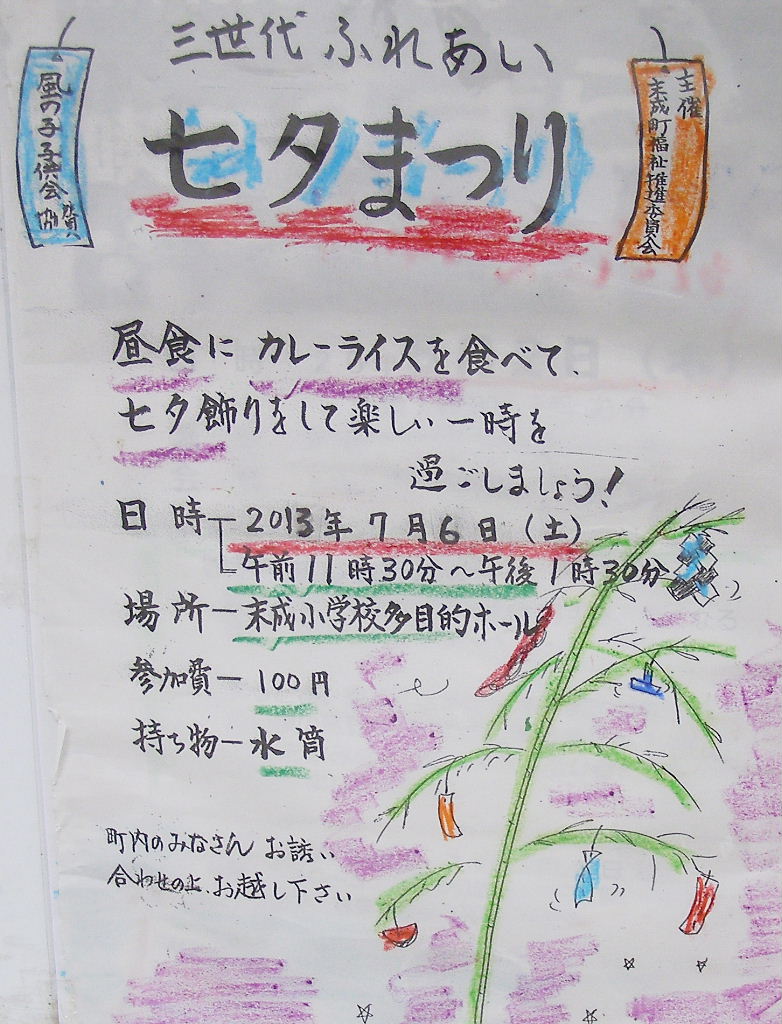 三世代 ふれあい
七夕まつり
主催
末成町福祉推進委員会
風の子子供会
協賛
昼食に カレーライスを食べて、
七夕飾りをして楽しい一時を
過ごしましょう!
日 時 2013年 7月6日(土)
午前11時30分〜午後1時30分
場 所ー末成小学校多目的ホール
参加費ー100円
持ち物ー水 筒
町内のみなさん お誘い
合わせの上、お越し下さい